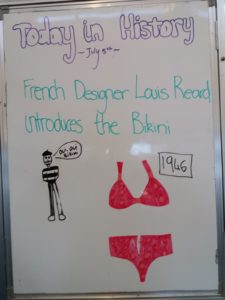 Today in History
~ July 5th ~
French Designer Louis Reard
introduces the Bikini
1946